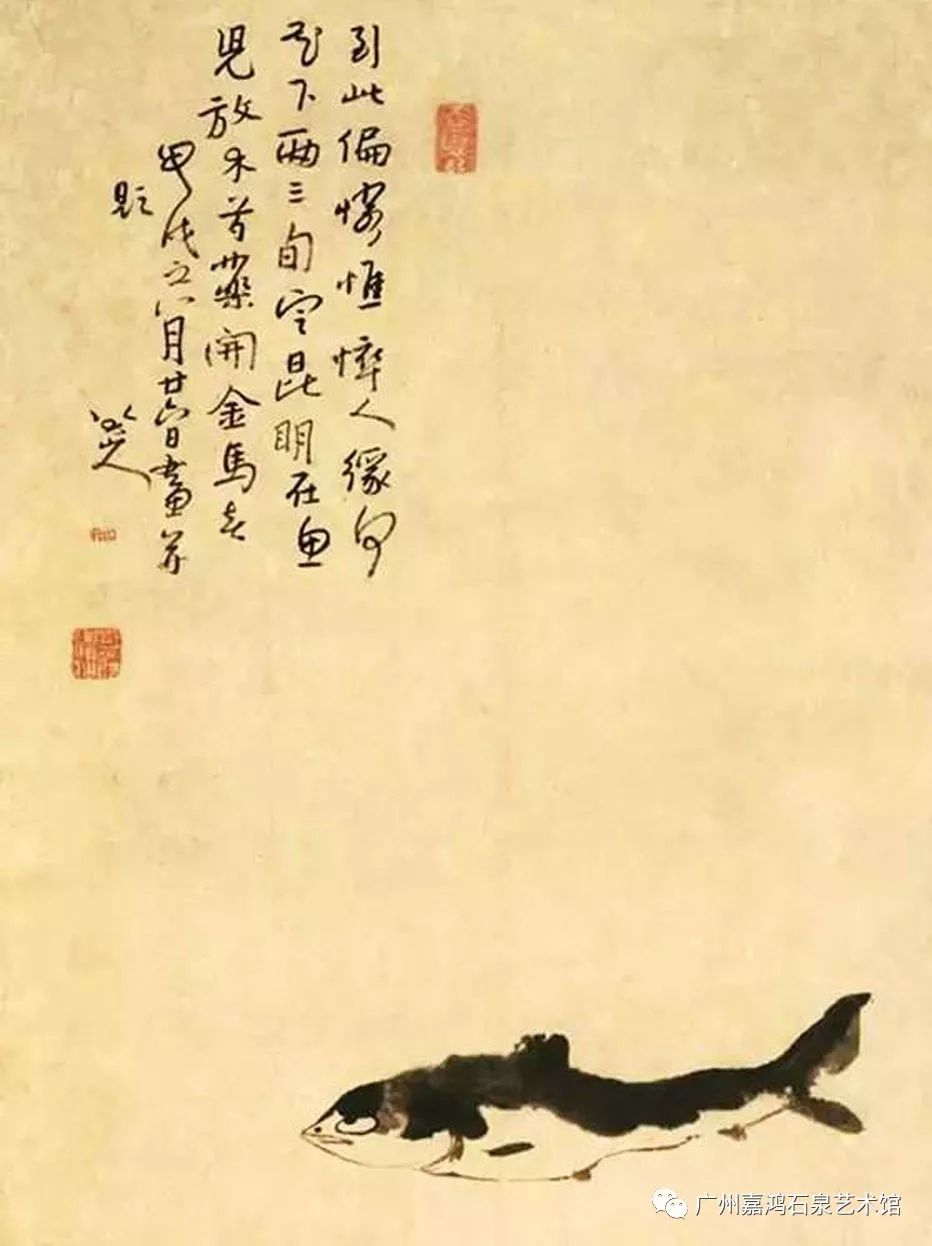 到此偏憐憔悴人緣何
花下兩三旬定昆明在魚
兒放木芍藥開金馬春
甲戌之六月廿六日畫并
題
八大山人
广州嘉鸿石泉艺术馆